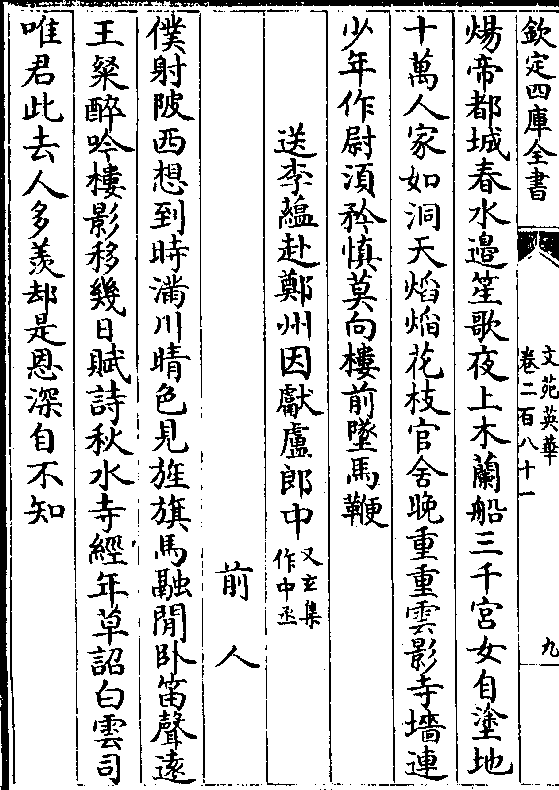 欽定四庫全書
文苑英華
卷二百八十一
九
煬帝都城春水邉笙歌夜上木蘭船三千宫女自塗地
十萬人家如洞天熖熖花枝官舍晩重重雲影寺墻連
少年作尉湏矜慎莫向樓前墜馬鞭
送李藴赴鄭州因獻盧郎中又玄集作中丞
前人
僕射陂西想到時滿川晴色見旌旗馬融閒卧笛聲逺
王粲醉吟樓影移幾日賦詩秋水寺經年草詔白雲司
唯君此去人多羡却是恩深自不知